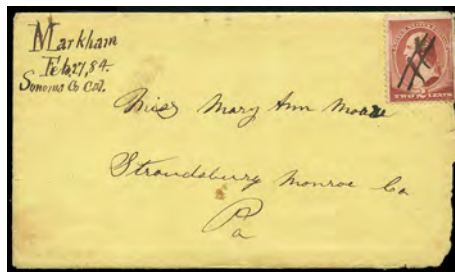 Markham
Feb, 27, 84.
Sonoma Co Cal.
TWO 2 CENTS
Miss Mary Ann Moore
Stroudsburg Monroe Co
Pa